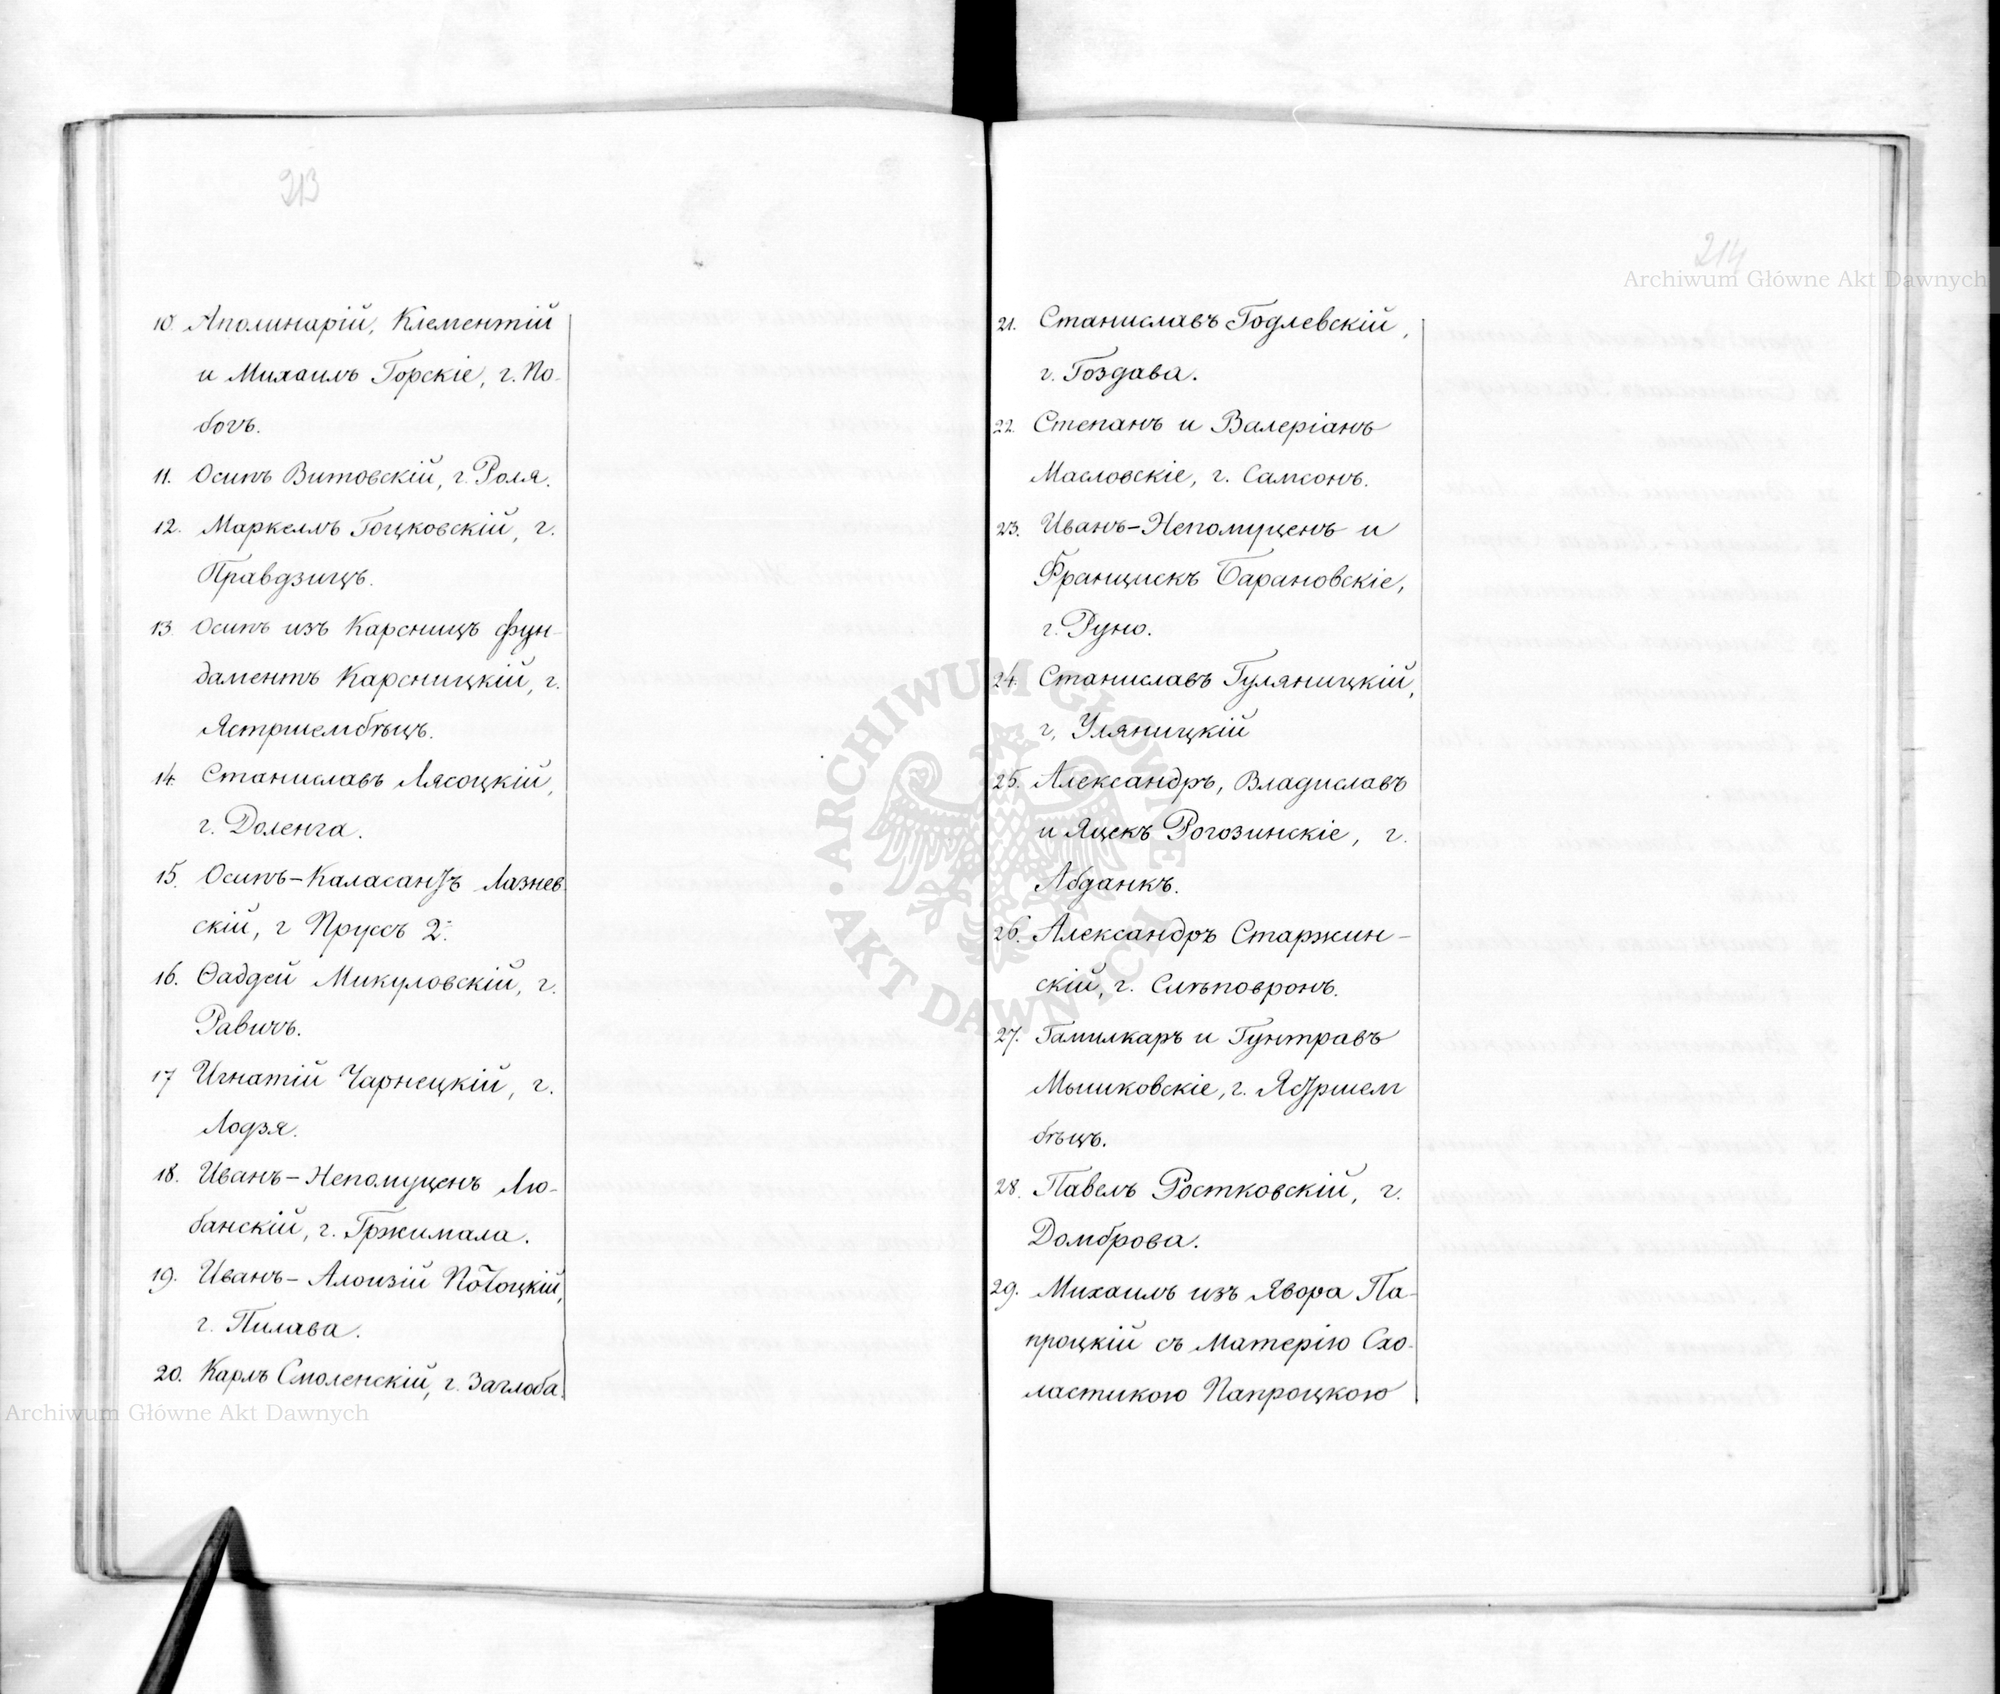 213
10. Аполинарій, Клементій
и Михаилъ Горскіе, г. По-
богъ.
11. Осипъ Витовскій, г. Роля.
12. Маркеллъ Гоцковскій, г.
Правдзицъ.
13. Осипъ изъ Карсницъ фун-
даментъ Карсницкій, г.
Ястршембѣцъ.
14. Станиславъ Лясоцкій,
г. Доленга.
15. Осипъ-Каласантъ Лазнев-
скій, г Пруссъ 2.
16. Ѳаддей Микуловскій, г.
Равичъ.
17 Игнатій Чарнецкій, г.
Лодзя.
18. Иванъ-Непомуценъ Лю-
банскій, г. Гржимала.
19. Иванъ-Алоизій Потоцкій,
г. Пилава.
20. Карлъ Смоленскій, г. Заглоба.
214
21. Станиславъ Годлевскій,
г. Гоздава.
22. Степанъ и Валеріанъ
Масловскіе, г. Самсонъ.
23. Иванъ-Непомуценъ и
Францискъ Барановскіе,
г. Руно.
24. Станиславъ Гуляницкій,
г. Уляницкій
25. Александръ, Владиславъ
и Яцекъ Рогозинскіе, г.
Абданкъ.
26. Александръ Старжин-
скій, г. Слѣповронъ.
27. Гамилкаръ и Гунтравъ
Мышковскіе, г. Ястршем
бѣцъ.
28. Павелъ Ростковскій, г.
Домброва.
29. Михаилъ изъ Явора Па-
процкій съ Матерію Схо-
ластикою Папроцкою
Archiwum Główne Akt Dawnych
Archiwum Główne Akt Dawnych
ARCHIWUM GŁÓWNE AKT DAWNYCH